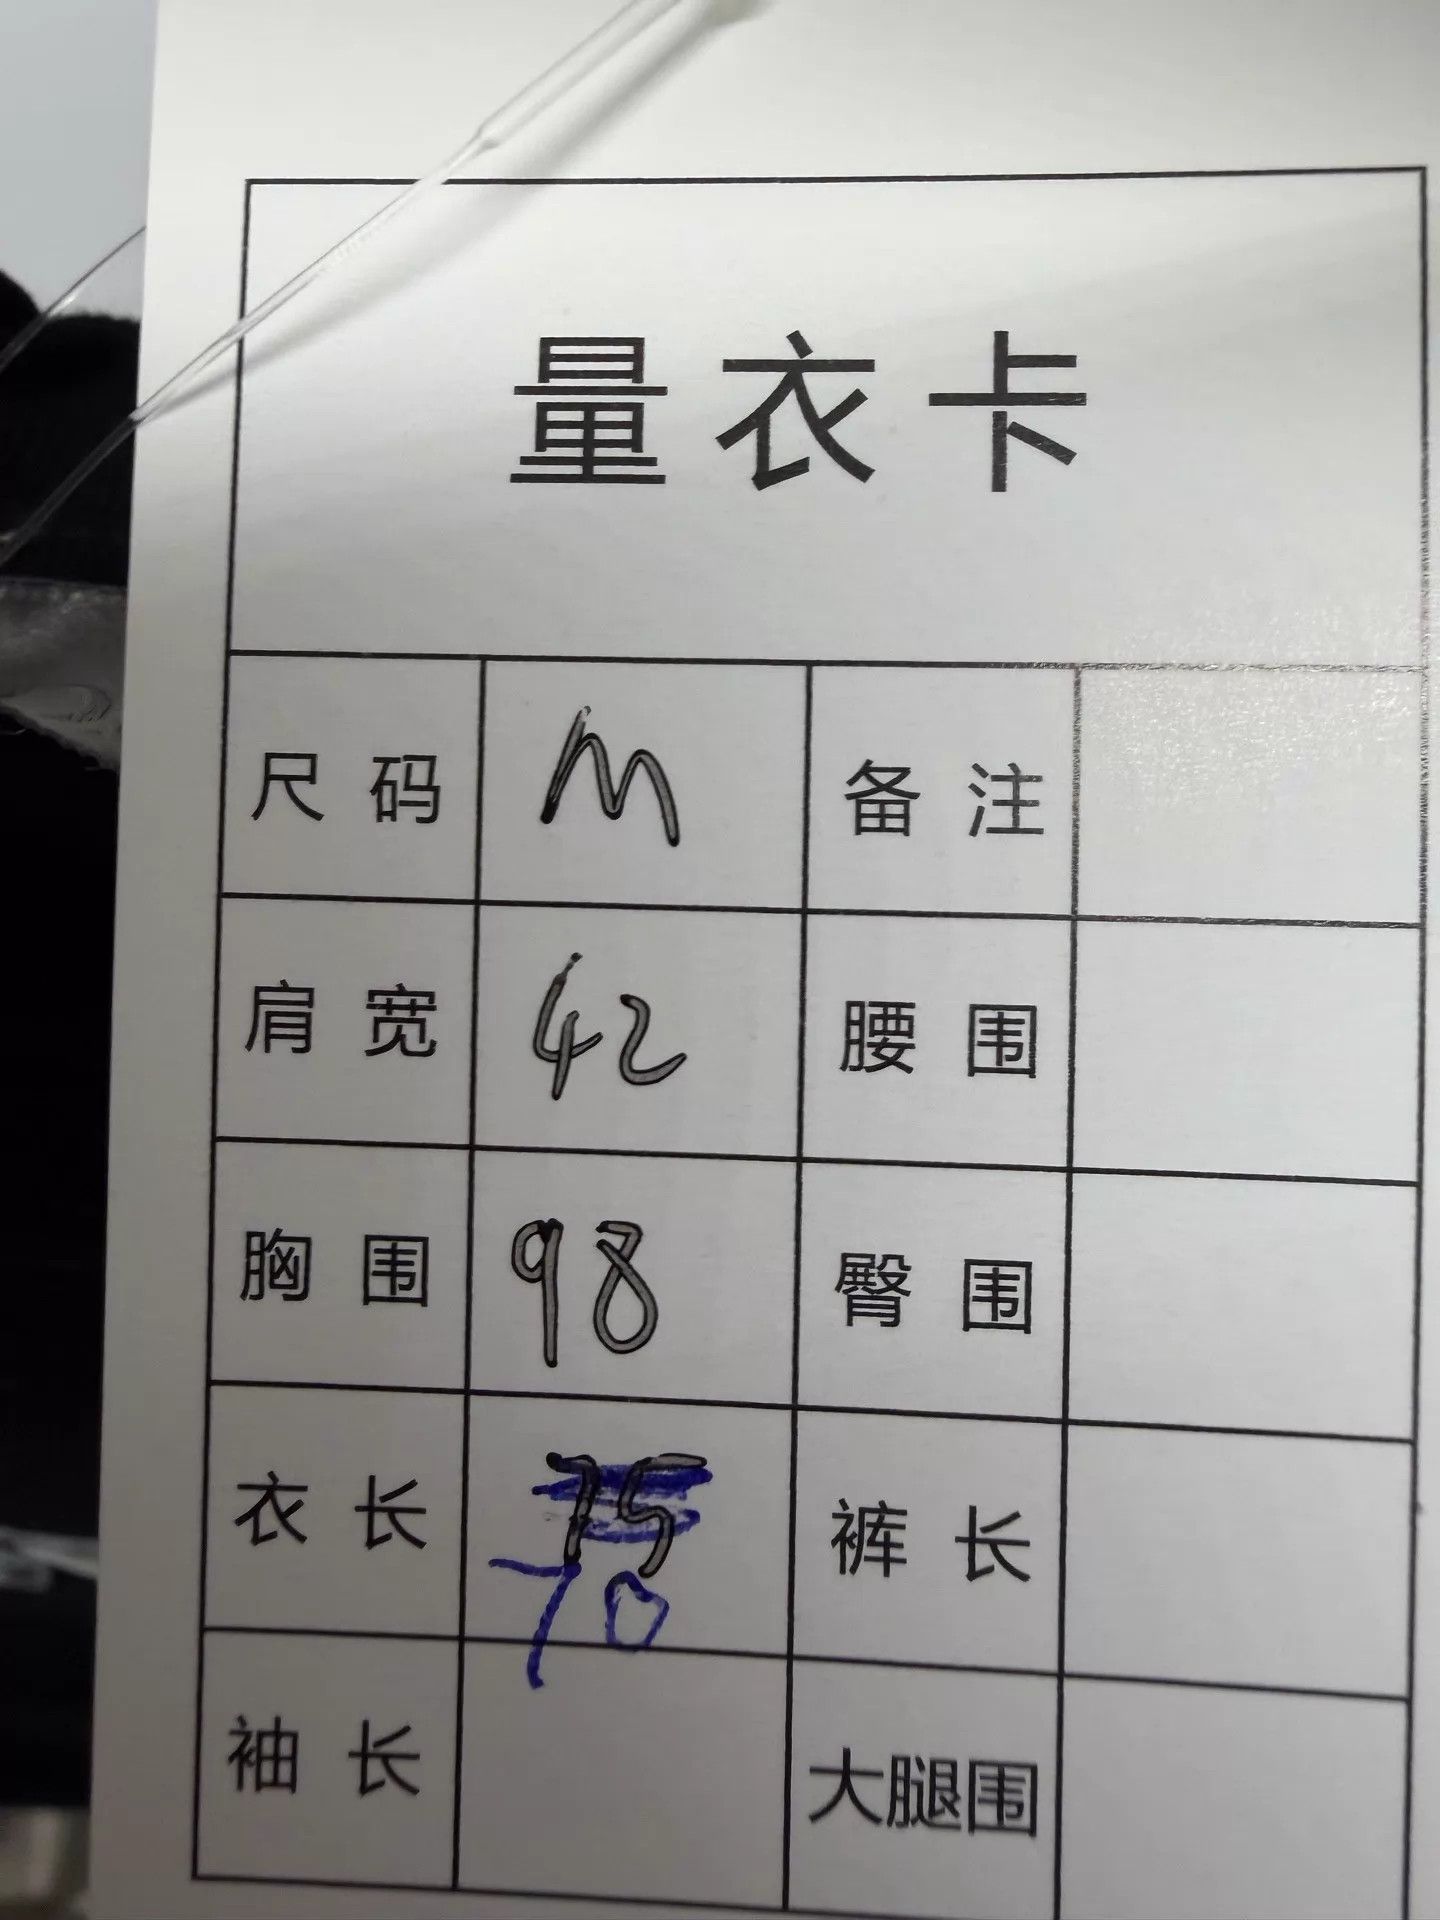 量衣卡
尺码 M 备注
肩宽 42 腰围
胸围 98 臀围
衣长 75 裤长
70
袖长 大腿围